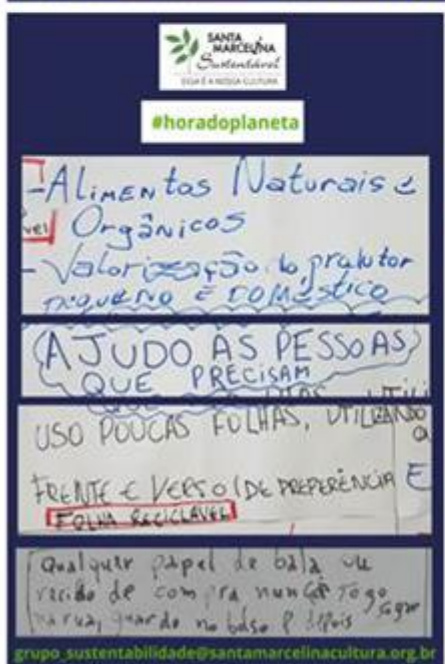 SANTA
MARCELINA
Sustentável
ESSA É A NOSSA CULTURA
#horadoplaneta
-Alimentos Naturais e
vel Orgânicos
- Valorização do produtor
pequeno e doméstico
AJUDO AS PESSOAS
QUE PRECISAM
USO POUCAS FOLHAS, UTILIZANDO
FRENTE E VERSO (DE PREFERÊNCIA E
FOLHA RECICLÁVEL
Qualquer papel de bala ou
recibo de compra nunca jogo
na rua, guardo no bolso e depois jogo
grupo_sustentabilidade@santamarcelinacultura.org.br